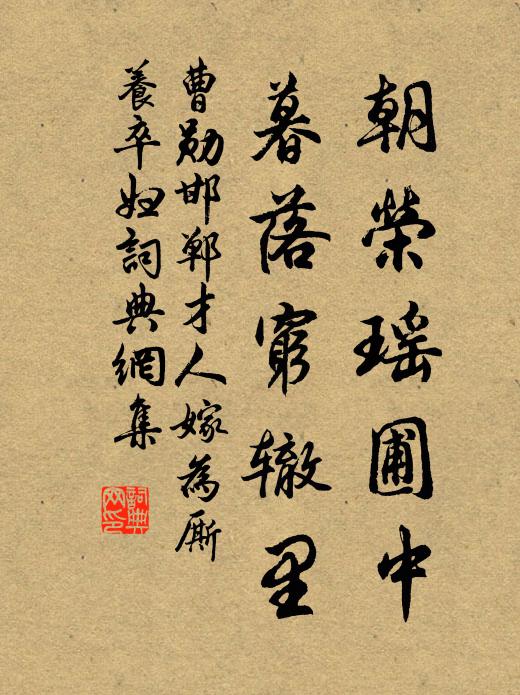 朝榮瑶圃中
暮落窮辙里
曹勛邯鄲才人嫁為厮
養卒婦詞典網集
詞典
网印